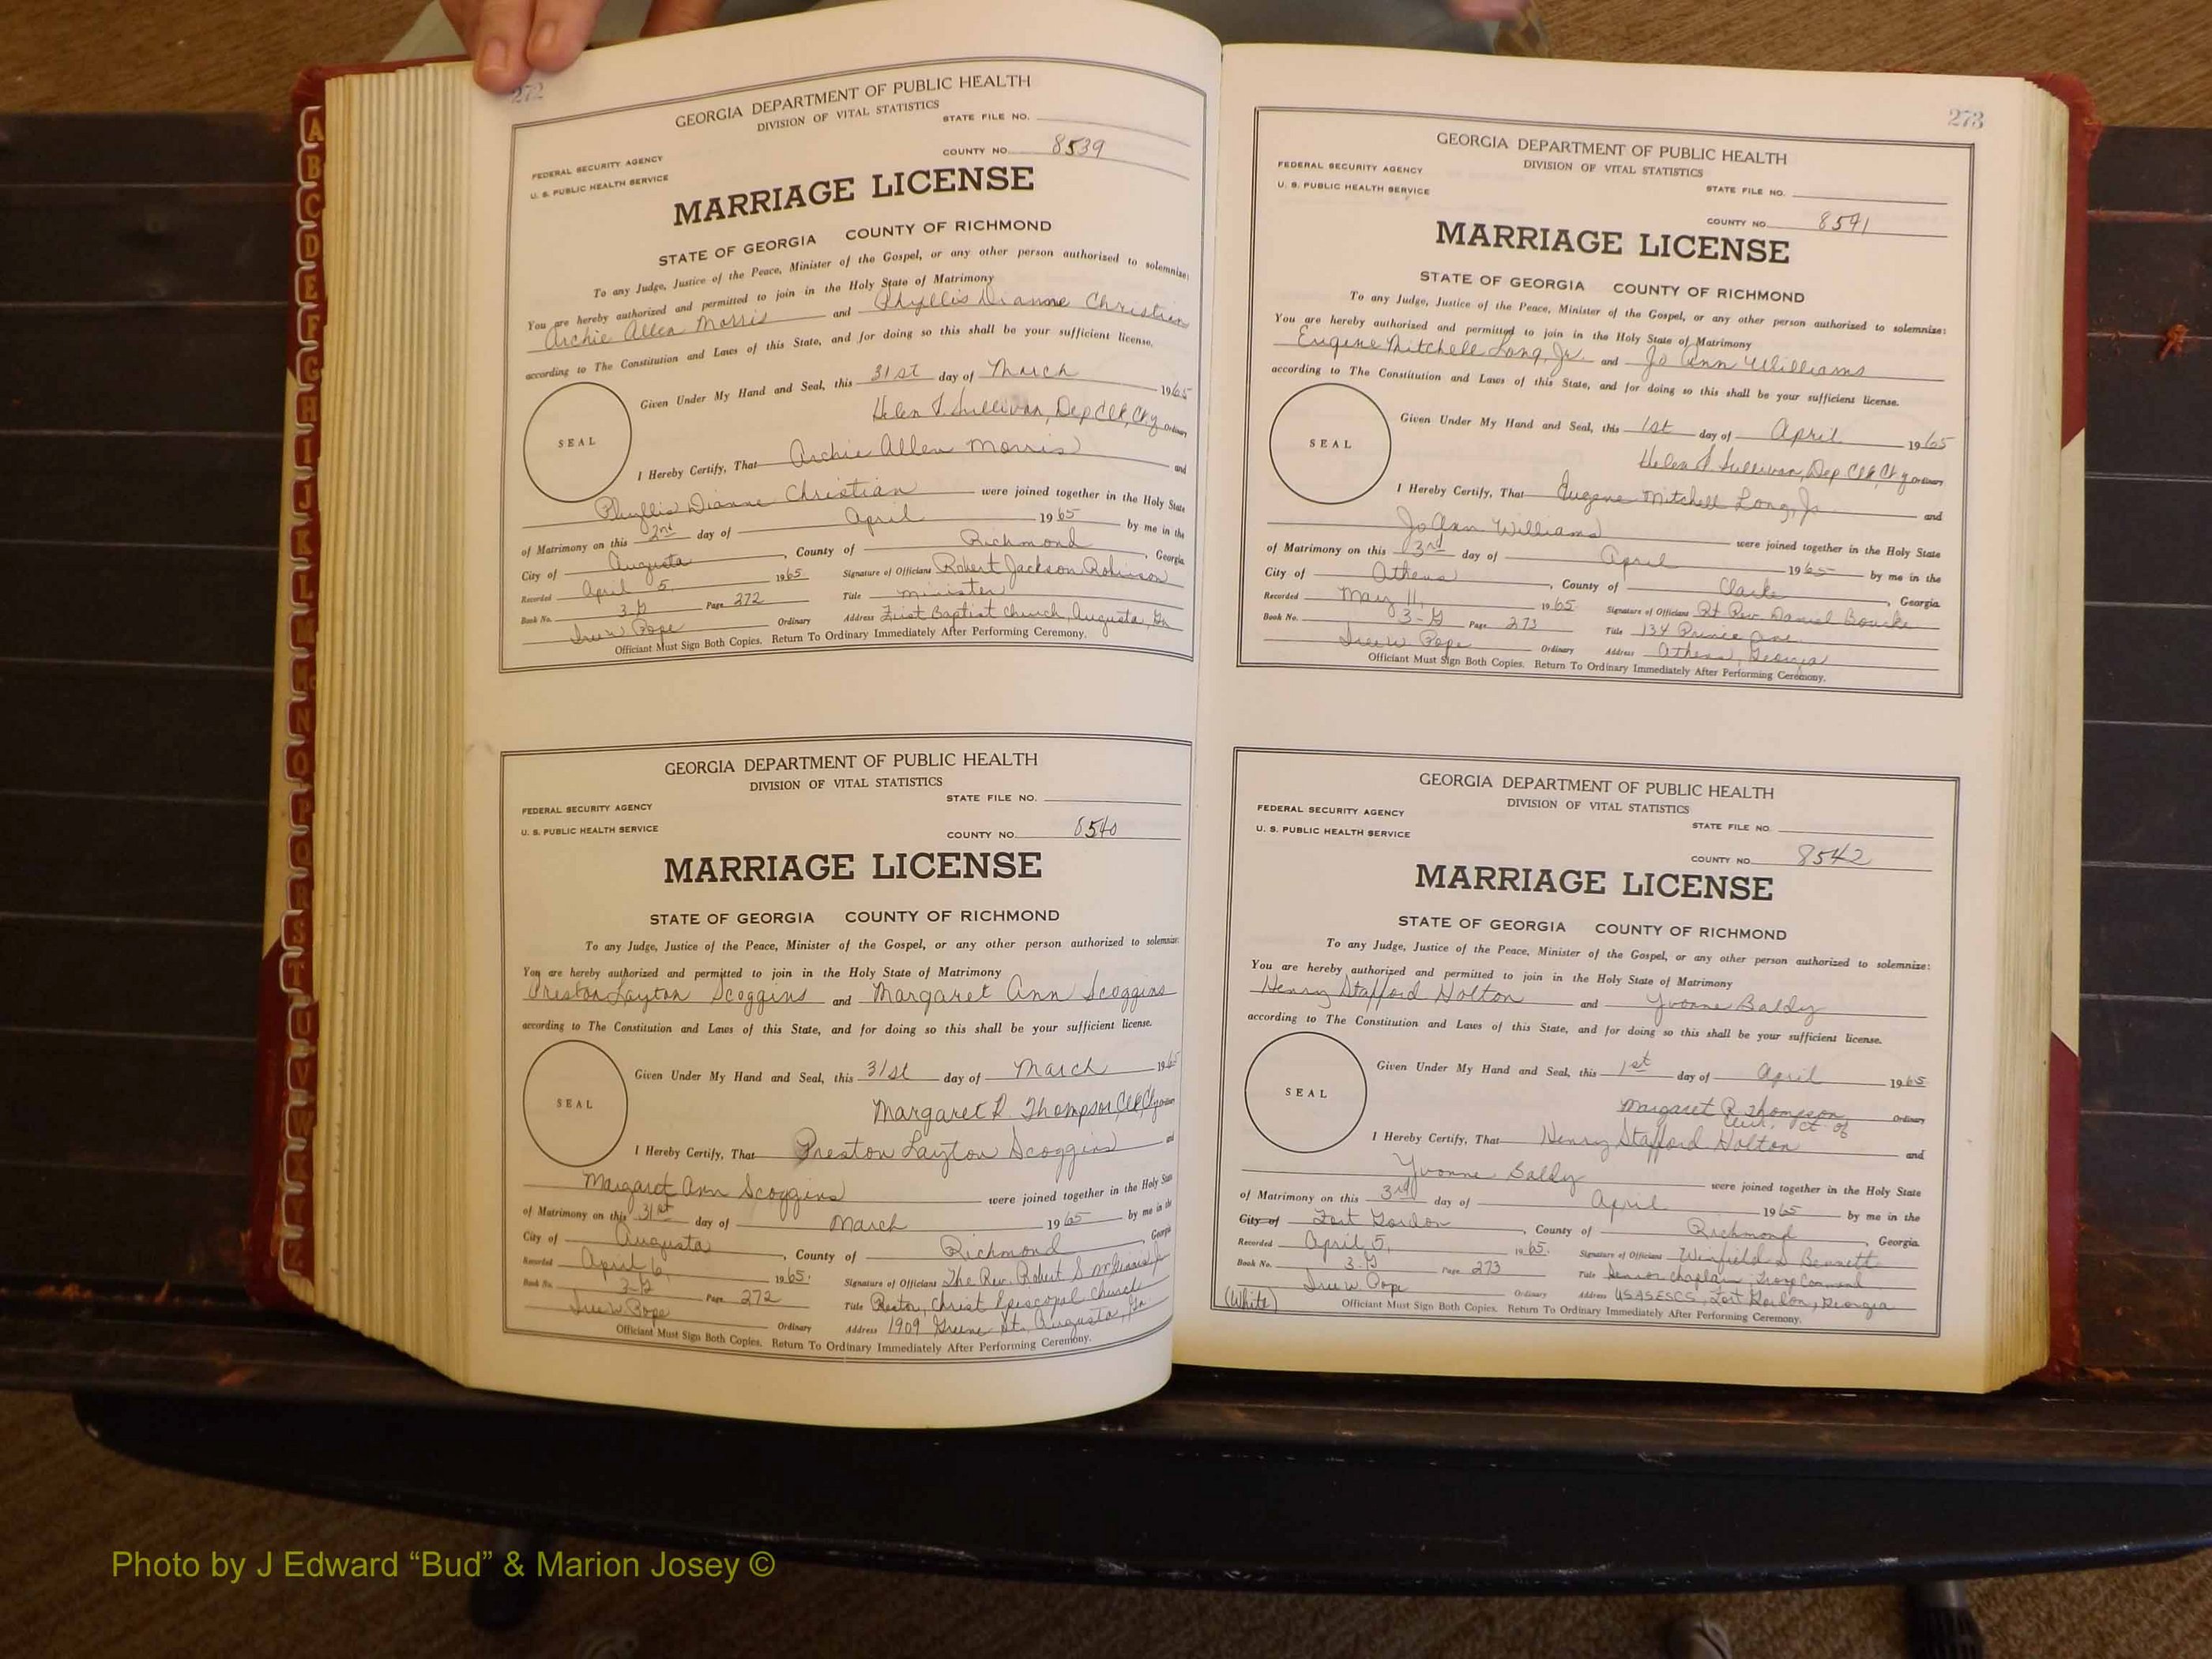 272
GEORGIA DEPARTMENT OF PUBLIC HEALTH
DIVISION OF VITAL STATISTICS
STATE FILE NO.
FEDERAL SECURITY AGENCY
U. S. PUBLIC HEALTH SERVICE
COUNTY NO. 8539
MARRIAGE LICENSE
STATE OF GEORGIA COUNTY OF RICHMOND
To any Judge, Justice of the Peace, Minister of the Gospel, or any other person authorized to solemnize:
You are hereby authorized and permitted to join in the Holy State of Matrimony
Archie Allen Morris and Phyllis Dianne Christian
according to The Constitution and Laws of this State, and for doing so this shall be your sufficient license.
Given Under My Hand and Seal, this 31st day of March 1965
Helen S. Sullivan, Dep Clk, Ct of Ordinary
SEAL
I Hereby Certify, That Archie Allen Morris and
Phyllis Dianne Christian were joined together in the Holy State
of Matrimony on this 2nd day of April 1965 by me in the
City of Augusta, County of Richmond, Georgia
Recorded April 5, 1965 Signature of Officiant Robert Jackson Robinson
Book No. 3-G Page 272 Title minister
Ordinary Address First Baptist Church, Augusta, Ga
Officiant Must Sign Both Copies. Return To Ordinary Immediately After Performing Ceremony.
GEORGIA DEPARTMENT OF PUBLIC HEALTH
DIVISION OF VITAL STATISTICS
STATE FILE NO.
FEDERAL SECURITY AGENCY
U. S. PUBLIC HEALTH SERVICE
COUNTY NO. 8540
MARRIAGE LICENSE
STATE OF GEORGIA COUNTY OF RICHMOND
To any Judge, Justice of the Peace, Minister of the Gospel, or any other person authorized to solemnize:
You are hereby authorized and permitted to join in the Holy State of Matrimony
Preston Layton Scoggins and Margaret Ann Scoggins
according to The Constitution and Laws of this State, and for doing so this shall be your sufficient license.
Given Under My Hand and Seal, this 31st day of March 1965
Margaret R. Thompson, Clk, Ct of Ordinary
SEAL
I Hereby Certify, That Preston Layton Scoggins and
Margaret Ann Scoggins were joined together in the Holy State
of Matrimony on this 31st day of March 1965 by me in the
City of Augusta, County of Richmond, Georgia
Recorded April 6, 1965. Signature of Officiant The Rev. Robert S
Book No. 3-G Page 272 Title Rector, Christ Episcopal Church
Ordinary Address 1909 Greene St., Augusta, Ga.
Officiant Must Sign Both Copies. Return To Ordinary Immediately After Performing Ceremony.
273
GEORGIA DEPARTMENT OF PUBLIC HEALTH
DIVISION OF VITAL STATISTICS
FEDERAL SECURITY AGENCY
U. S. PUBLIC HEALTH SERVICE
STATE FILE NO.
COUNTY NO. 8541
MARRIAGE LICENSE
STATE OF GEORGIA COUNTY OF RICHMOND
To any Judge, Justice of the Peace, Minister of the Gospel, or any other person authorized to solemnize:
You are hereby authorized and permitted to join in the Holy State of Matrimony
Eugene Mitchell Long, Jr. and Jo Ann Williams
according to The Constitution and Laws of this State, and for doing so this shall be your sufficient license.
Given Under My Hand and Seal, this 1st day of April 1965
Helen S Sullivan, Dep Clk, Ct of Ordinary
SEAL
I Hereby Certify, That Eugene Mitchell Long, Jr. and
Jo Ann Williams were joined together in the Holy State
of Matrimony on this 3rd day of April 1965 by me in the
City of Athens, County of Clarke, Georgia.
Recorded May 11, 1965 Signature of Officiant Rt Rev Daniel Bourke
Book No. 3-G Page 273 Title 134 Prince Ave.
Ordinary Address Athens, Georgia
Officiant Must Sign Both Copies. Return To Ordinary Immediately After Performing Ceremony.
GEORGIA DEPARTMENT OF PUBLIC HEALTH
DIVISION OF VITAL STATISTICS
FEDERAL SECURITY AGENCY
U. S. PUBLIC HEALTH SERVICE
STATE FILE NO.
COUNTY NO. 8542
MARRIAGE LICENSE
STATE OF GEORGIA COUNTY OF RICHMOND
To any Judge, Justice of the Peace, Minister of the Gospel, or any other person authorized to solemnize:
You are hereby authorized and permitted to join in the Holy State of Matrimony
Henry Stafford Holton and Yvonne Baldy
according to The Constitution and Laws of this State, and for doing so this shall be your sufficient license.
Given Under My Hand and Seal, this 1st day of April 1965
Margaret R Thompson Ordinary
Clk, Ct. of
SEAL
I Hereby Certify, That Henry Stafford Holton and
Yvonne Baldy were joined together in the Holy State
of Matrimony on this 3rd day of April 1965 by me in the
City of Fort Gordon, County of Richmond, Georgia.
Recorded April 5, 1965. Signature of Officiant Winfield S Bennett
Book No. 3-G Page 273 Title Senior Chaplain, Troop Command
Ordinary Address USASESCS, Fort Gordon, Georgia
(White)
Officiant Must Sign Both Copies. Return To Ordinary Immediately After Performing Ceremony.
A
B
C
D
E
F
G
H
I
J
K
L
M
N
O
P
Q
R
S
T
U
V
W
X
Y
Z
Photo by J Edward “Bud” & Marion Josey ©